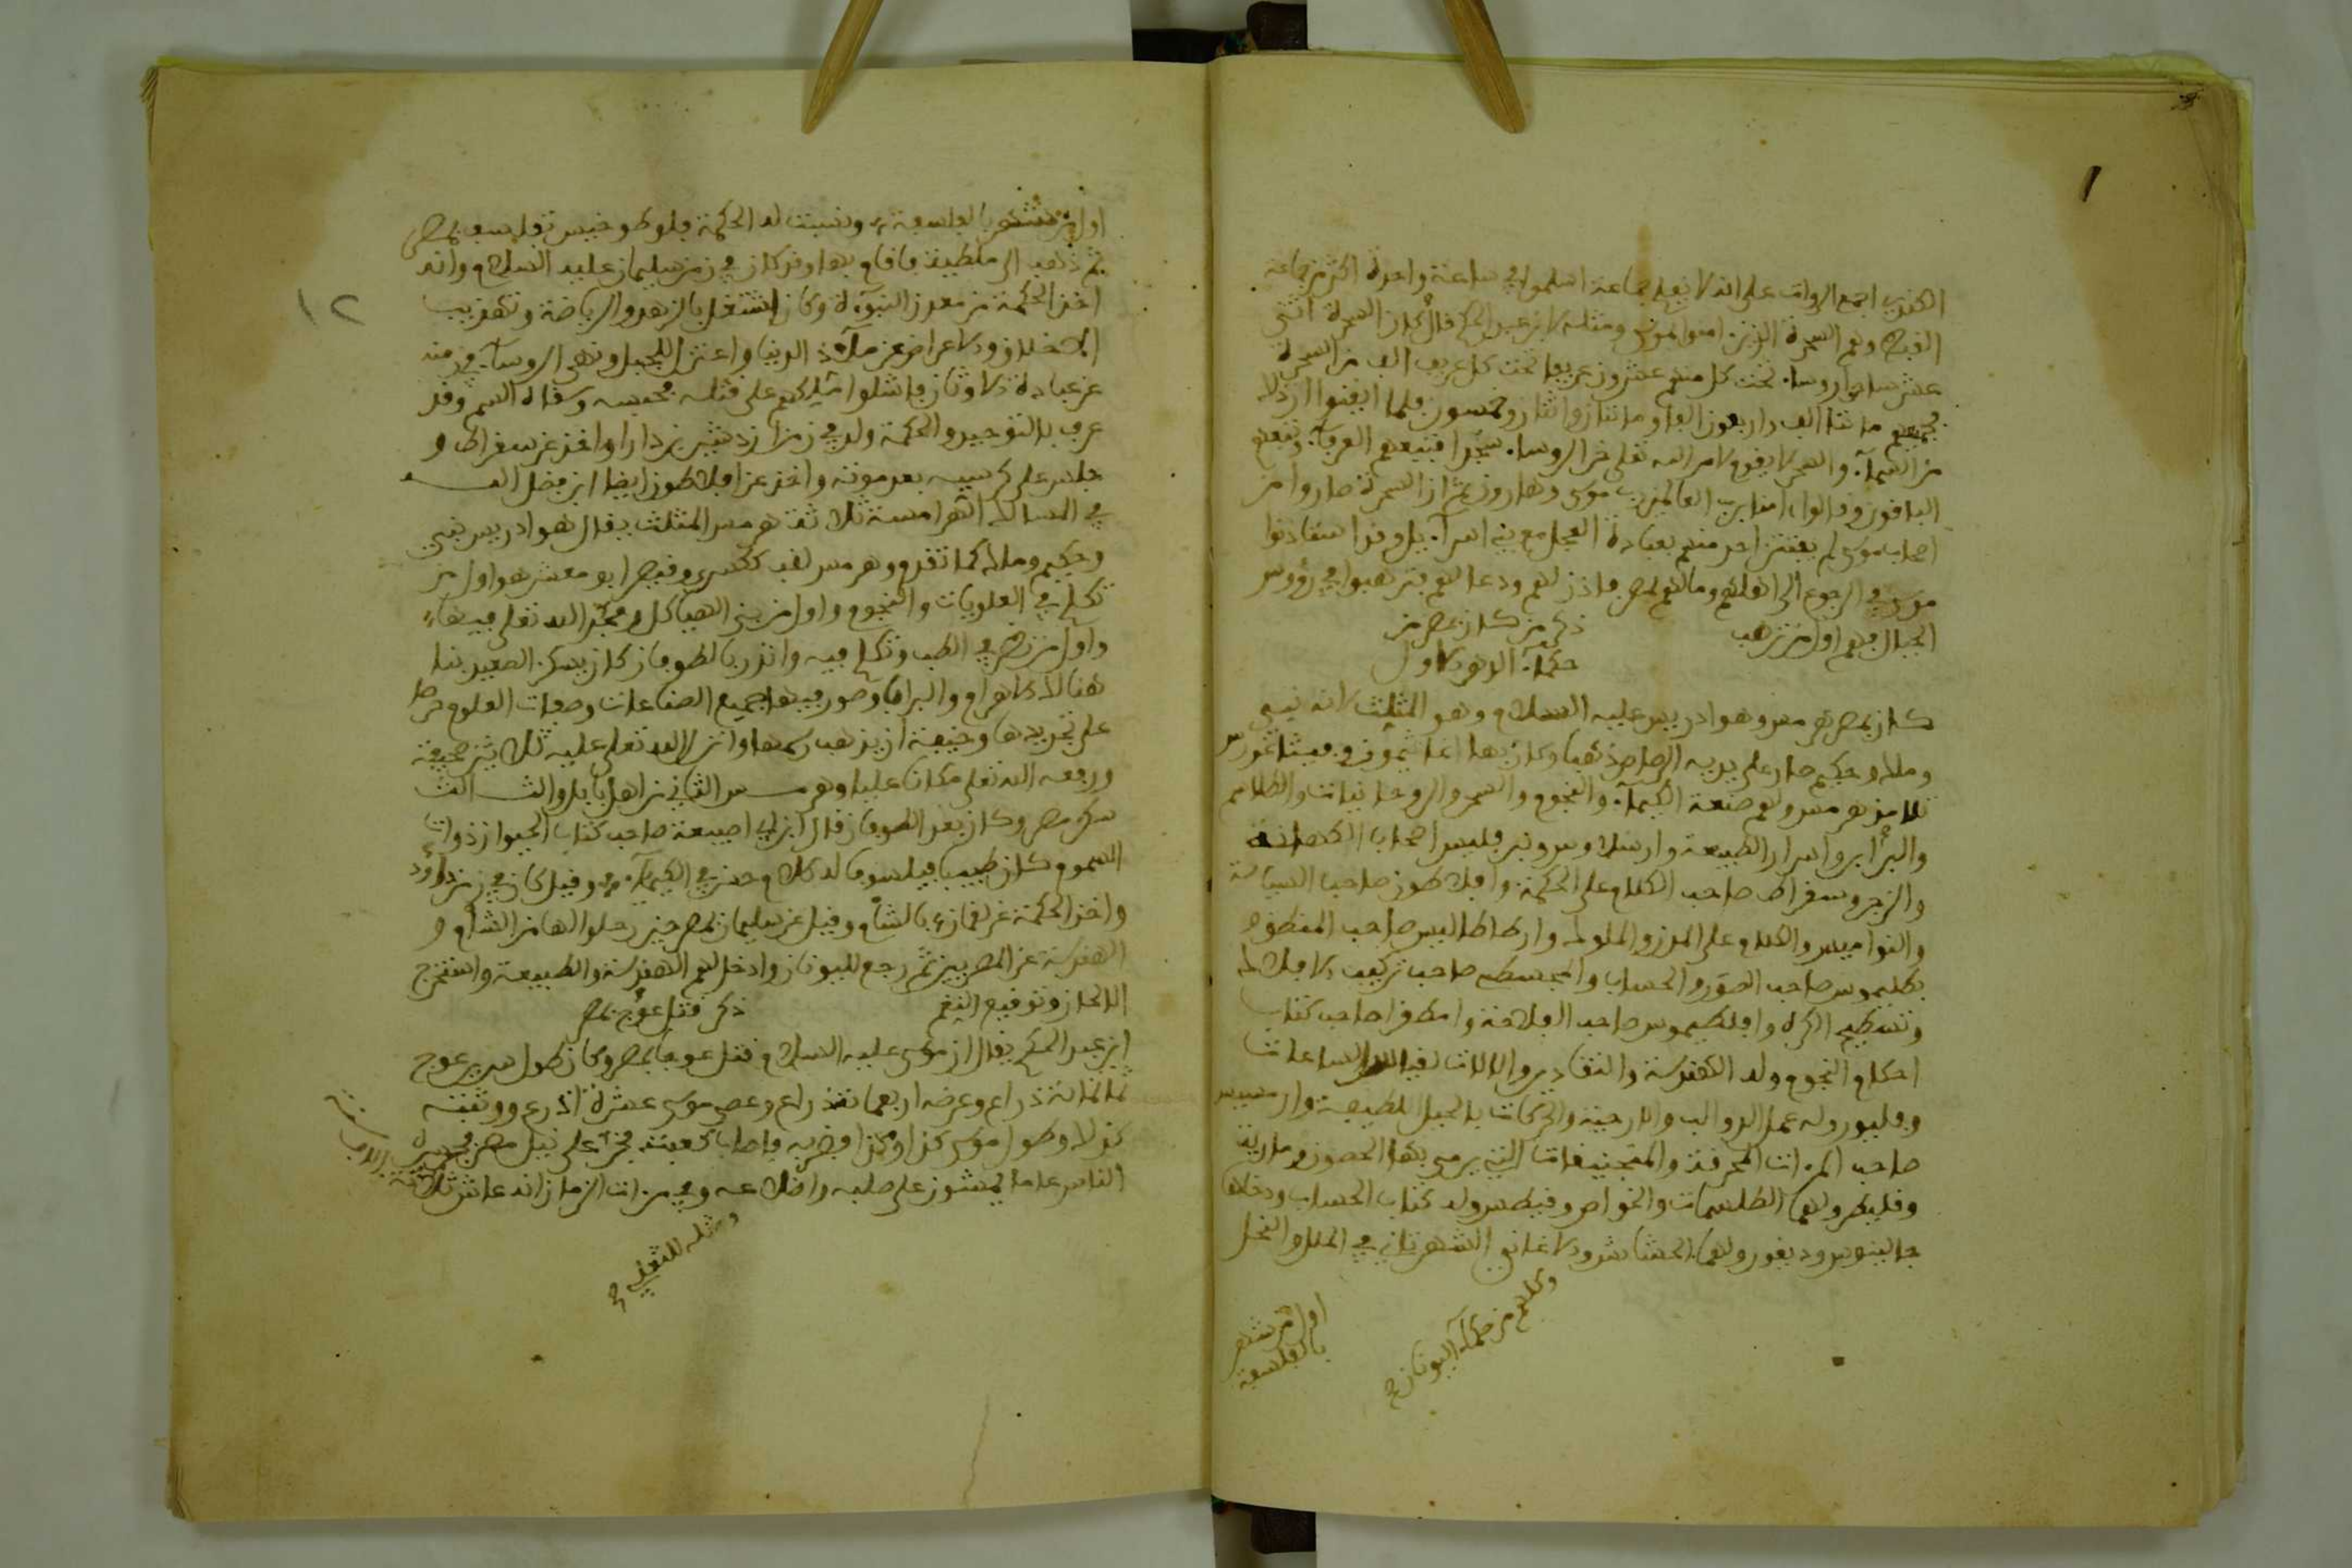 الكندي اجمع الرواة على انه لا يعلم جماعة اسلموا في ساعة واحدة اكثر من جماعة
القبط وهم السحرة الذين امنوا بموسى ومثله لابن عبد الحكم قال كان السحرة اثنى
عشر ساحرا روسا تحت كل منهم عشرون عريفا تحت كل عريف الف من السحرة
فجميعهم مائتا الف واربعون الفا ومائتان واثنان وخمسون فلما ايقنوا ان ذلك
من السمآء والسحر لا يقوم لامر الله تعلى خر الروسا سجدا فتبعهم العرفآء وتبعهم
الباقون وقالوا امنا برب العالمين رب موسى وهارون ثم ان السحرة صاروا من
اصحاب موسى لم يفتتن احد منهم بعبادة العجل مع بني اسرآءيل وقد استاذنوا
موسى في الرجوع الى اهلهم ومالهم بمصر فاذن لهم ودعا لهم فترهبوا في رؤوس
الجبال فهم اول من ترهب ذكر من كان بمصر من
حكمآء الدهر الاول
كان بمصر هرمس وهو ادريس عليه السلام وهو المثلث لانه نبي
وملك وحكيم صار على يديه الرصاص ذهبا وكان بها اغاثيمون وفيثاغورس
تلامذ هرمس ولهم صنعة الكيميآء والنجوم والسحر والروحانيات والطلاسم
والبرابر واسرار الطبيعة وارسلاوس وبنرقليس اصحاب الكهانة
والزجر وسقراط صاحب الكلام على الحكمة وافلاطون صاحب السياسة
والنواميس والكلام على المدن والملوك وارسطاطاليس صاحب المنطق و
بطليموس صاحب الصور والحساب والمجسطى صاحب تركيب الافلاك
وتسطيح الكرة وافلطيموس صاحب الفلاحة وامطقرا صاحب كتاب
احكام النجوم وله الهندسة والتقادير والالات لقياس الساعات
وفليور وله عمل الدواليب والارحية والحركات بالحيل اللطيفة وارميس
صاحب المرءات المحرقة والمنجنيقات التي يرمى بها الحصون ومارية
وقليطرولهم الطلسمات والخواص وقيطس وله كتاب الحساب ودخلها
جالينوس وديقورولها الحشائش والاغاني الشهرستاني في الملل والنحل
وكلهم من حكمآء اليونان
اول من شهر
بالفلسفة
اول من شهر بالفلسفة ونسبت له الحكمة فلوطوخيس تفلسف بمصر
ثم ذهب الى ملطية فاقام بها وقد كان في زمن سليمان عليه السلام وانه
اخذ الحكمة من معدن النبوءة وكان اشتغل بالزهد والرياضة وتهذيب
الاخلاق والاعراض عن ملاذ الدنيا واعتزل الجبل ونهى الروسآء في زمنه
عن عبادة الاوثان فاشلوا ملكهم على قتله فحبسه وسقاه السم وقد
عرف بالتوحيد والحكمة ولد في زمن ازدشير بن دارا واخذ عن سقراط و
جلس على كرسيه بعد موته واخذ عن افلاطون ايضا ابن فضل الله
في المسالك الهرامسة ثلاثة هرمس المثلث يقال هو ادريس نبي
وحكيم وملك كما تقدم وهرمس لقب ككسرى وقيصر ابو معشر هو اول من
تكلم في العلويات والنجوم واول من بنى الهياكل ومجد الله تعلى فيها
واول من نظر في الطب وتكلم فيه وانذر بالطوفان كان يسكن الصعيد بنا
هنالك الاهرام والبرابي وصور فيها جميع الصناعات وصفات العلوم حرصا
على تخليدها وخيفة ان يذهب رسمها وانزل الله تعلى عليه ثلاثين صحيفة
ورفعه الله تعلى مكانا عليا وهرمس الثاني من اهل بابل والثالث
سكن مصر وكان بعد الطوفان قال ابن ابي اصيبعة صاحب كتاب الحيوان ذوات
السموم وكان طبيبا فيلسوفا له كلام حسن في الكيميآء وقيل كان في زمن داود
واخذ الحكمة عن لقمان بالشام وقيل عن سليمان بمصر حين رحلوا لها من الشام و
الهندسة عن المصريين ثم رجع لليونان وادخل لهم الهندسة والطبيعة واستخرج
الالحان وتوقيع النغم ذكر قتل عوج بمصر
ابن عبد الحكم يقال ان موسى عليه السلام قتل عوجا بمصر وكان طول سرير عوج
ثمانمائة ذراع وعرضه اربعمائة ذراع وعصى موسى عشرة اذرع ووثبته
كذلك وطول موسى كذا وكذا فضربه فاصاب كعبه فخر على نيل مصر فجسره
الناس عاما يمشون على صلبه واضلاعه وفي مرءات الزمان انه عاش ثلاثة
الاف سنة
ومثله للثعلبي